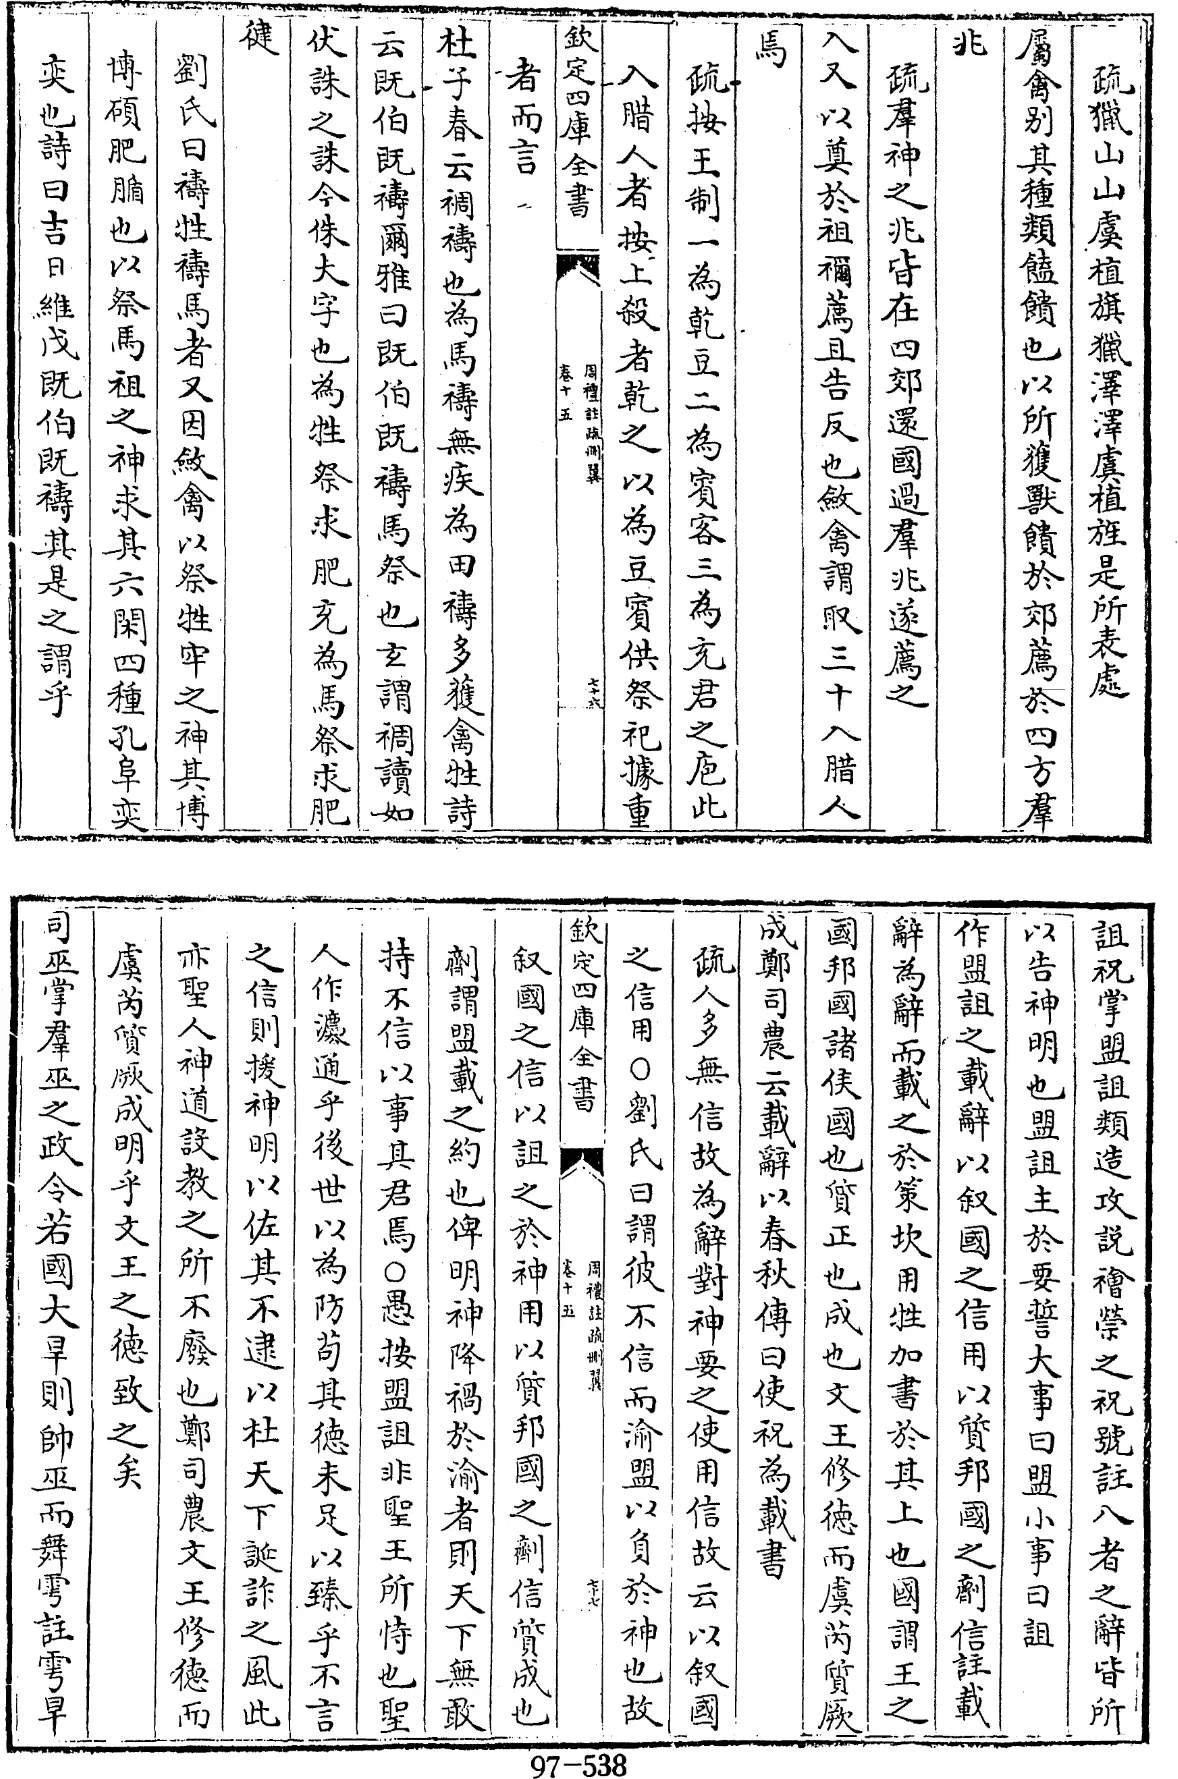 疏獵山山虞植旗獵澤澤虞植旌是所表處
屬禽别其種類饁饋也以所獲獸饋於郊薦於四方羣
兆
疏羣神之兆皆在四郊還國過羣兆遂薦之
入又以奠於祖禰薦且告反也斂禽謂取三十入腊人
馬
疏按王制一為乾豆二為賓客三為充君之庖此
入腊人者按上殺者乾之以為豆賓供祭祀據重
欽定四庫全書
周禮註疏刪翼
卷十五
七十六
者而言
杜子春云禂禱也為馬禱無疾為田禱多獲禽牲詩
云既伯既禱爾雅曰既伯既禱馬祭也玄謂禂讀如
伏誅之誅今侏大字也為牲祭求肥充為馬祭求肥
健
劉氏曰禱牲禱馬者又因斂禽以祭牲牢之神其博
博碩肥腯也以祭馬祖之神求其六閑四種孔阜奕
奕也詩曰吉日維戊既伯既禱其是之謂乎
詛祝掌盟詛類造攻說禬禜之祝號註八者之辭皆所
以告神明也盟詛主於要誓大事曰盟小事曰詛
作盟詛之載辭以叙國之信用以質邦國之劑信註載
辭為辭而載之於策坎用牲加書於其上也國謂王之
國邦國諸侯國也質正也成也文王修徳而虞芮質厥
成鄭司農云載辭以春秋傳曰使祝為載書
疏人多無信故為辭對神要之使用信故云以叙國
之信用○劉氏曰謂彼不信而渝盟以負於神也故
欽定四庫全書
周禮註疏刪翼
卷十五
七十七
叙國之信以詛之於神用以質邦國之劑信質成也
劑謂盟載之約也俾明神降禍於渝者則天下無敢
持不信以事其君焉○愚按盟詛非聖王所恃也聖
人作灋通乎後世以為防苟其徳未足以臻乎不言
之信則援神明以佐其不逮以杜天下誕詐之風此
亦聖人神道設教之所不廢也鄭司農文王修徳而
虞芮質厥成明乎文王之徳致之矣
司巫掌羣巫之政令若國大旱則帥巫而舞雩註雩旱
97-538